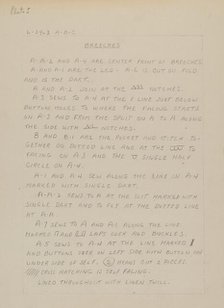 Plate 5
L-2962 A-B-C
BREECHES
A-A-2 AND A-4 ARE CENTER FRONT OF BREECHES.
A AND A-1 ARE THE LEG - A-2 IS OUT SO FOLD
AND IS THE DART.
A AND A-2 JOIN AT THE NOTCHES.
A-3 SEWS TO A-4 AT THE F LINE JUST BELOW
BUTTON HOLES TO WHERE THE FACING STARTS
ON A-3 AND FROM THE SPLIT ON A TO A ALONG
THE SIDE WITH NOTCHES.
B AND B-1 ARE THE POCKET AND STITCH TO-
GETHER ON DOTTED LINE AND AT THE TO
FACING ON A-3 AND THE V SINGLE HOLE
CIRCLE ON A-4.
A-1 AND A-4 SEW ALONG THE LINE ON A-4
MARKED WITH SINGLE DART.
A-A-2 SEWS TO A-4 AT THE SLIT MARKED WITH
SINGLE DART AND TO FLY AT THE DOTTED LINE
AT A-4.
A-7 SEWS TO A AND A-1 ALONG THE LINE
MARKED AND LAPS OVER AND BUCKLES.
A-5 SEWS TO A-4 WITH THE LINE MARKED 1
AND BUTTONS OVER IN LEFT SIDE WITH BUTTON ON
UNDER SIDE OF SELF. MEANS CUT 2 PIECES.
HATCHING IS SELF FACING.
LINED THROUGHOUT WITH LINEN TWILL.